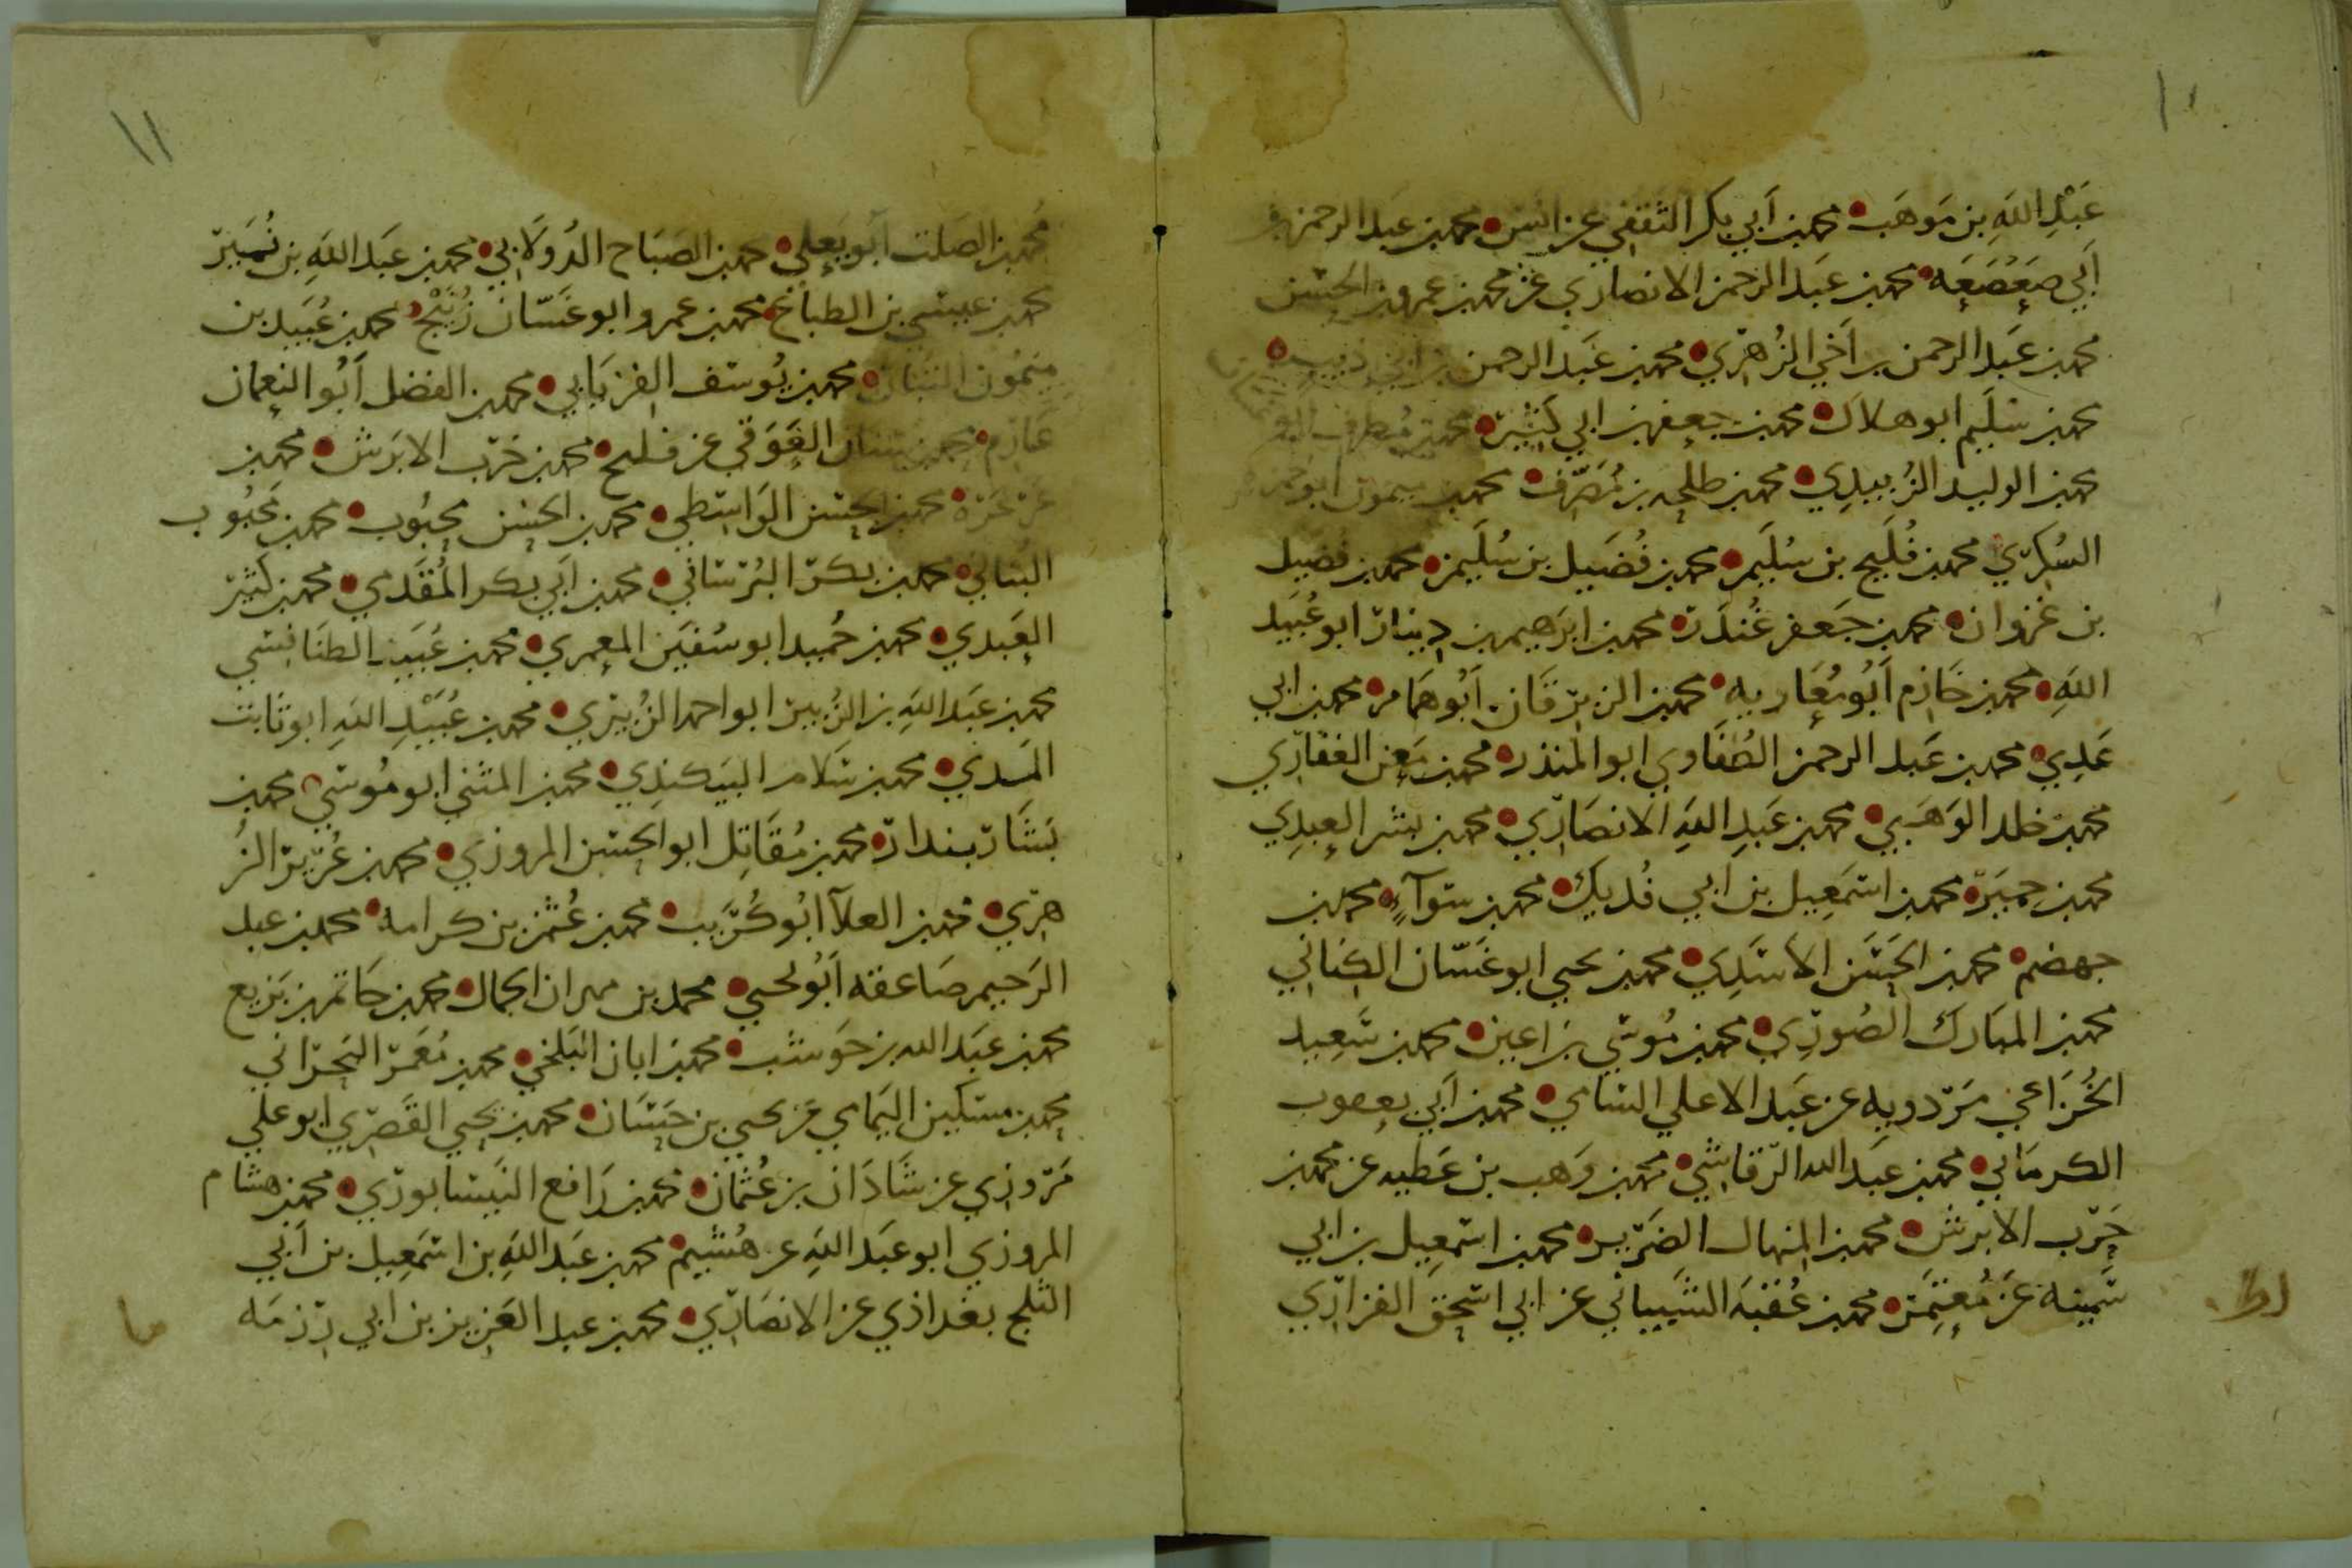 ١٠
عَبْدِ اللَّهِ بن مَوهَب • محمد بن أَبي بكر الثقفي عن انس • محمد بن عبد الرحمن بن
أَبي صَعْصَعَه • محمد بن عبد الرحمن الانصاري عن محمد بن عمرو بن الحسن
محمد بن عبد الرحمن بن أخي الزُهري • محمد بن عبد الرحمن بن ابي ذيب •
محمد بن سُلَيم ابو هلال • محمد بن جعفر بن ابي كثير • محمد بن مُطرف
محمد بن الوليد الزُبيدي • محمد بن طلحه بن مُصَرِّف • محمد بن ميمون ابو حمزه
السُكري محمد بن فُلَيح بن سُلَيمن • محمد بن فُضَيل بن سُلَيمن • محمد بن فضيل
بن غزوان • محمد بن جَعفر غُندَر • محمد بن ابرَهيم بن دينار ابو عُبَيد
اللهِ • محمد بن خَازم أبُو مُعَاويه • محمد بن الزبرقان أبُو همام • محمد بن ابي
عَدِي • محمد بن عَبد الرحمن الطُفَاوي ابو المنذر • محمد بن مَعن الغفاري
محمد بن خلد الوَهبي • محمد بن عَبدِ اللهِ الانصَاري • محمد بن بشر العبدِي
محمد بن حِميَر • محمد بن اسمَعِيل بن ابي فُديك • محمد بن سوآءٍ • محمد بن
جهضم • محمد بن الحَسَن الاسَدِي • محمد بن يحيى ابو غَسّان الكناني
محمد بن المبَارك الصُورِي • محمد بن مُوسي بن اعين • محمد بن سَعِيد
الخُزَاعي مَردويه عن عَبد الاعلي السَامي • محمد بن أبي يعقوب
الكرمَاني • محمد بن عبَد الله الرَقاشي • محمد بن وَهب بن عَطيه عن محمد بن
حَرب الابرش • محمد بن المنهال الضَرير • محمد بن اسمعِيل بن ابي
سَمِينه عَن مُعتمَر • محمد بن عُقبَه الشَيبَاني عن ابي اسحق الفزاري
١١
مُحمد بن الصَلت أبُو يَعلي • محمد بن الصَبَاح الدُولَابي • محمد بن عَبَد اللهِ بن نُمَير
محمد بن عيسي بن الطباع • محمد بن عمرو ابو غَسّان زُنَيْج • محمد بن عُبَيد بن
ميمُون التبان • محمد بن يُوسف الفِريَابي • محمد بن الفضل أَبُو النعمان
عَارم • محمد بن سنان العَوَقي عن فليح • محمد بن حَرب الابرَش • محمد بن
عَرعَرَة • محمد بن الحسن الوَاسِطي • محمد بن الحسن محبُوب • محمد بن محبُوب
البُناني • محمد بن بكر البُرسَاني • محمد بن أبي بكر المُقَدمي • محمد بن كثير
العَبدي • محمد بن حُميد ابو سُفيَن المعمري • محمد بن عُبَيد الطنَافسي
محمد بن عَبد اللهِ بن الزُبير ابو احمد الزُبيري • محمد بن عُبَيْدِ اللهِ ابو ثابت
المَدني • محمد بن سَلام البيكندِي • محمد بن المثني ابو مُوسي • محمد بن
بَشَار بندار • محمد بن مُقَاتِل ابو الحسَن المروزي • محمد بن عُزيز الزُ
هري • محمد بن العلآ ابُو كُرَيب • محمد بن عُثمَن بن كرامه • محمد بن عبد
الرَحيم صَاعقه أبُو يحيي • محمد بن مهران الجمال • محمد بن حَاتم بن بَزيع
محمد بن عَبد الله بن حَوشب • محمد بن ابان البَلخي • محمد بن مُعمَر البَحراني
محمد بن مسكين اليَمامي عن يحيي بن حَسَان • محمد بن يحيي القَصري ابو علي
مَروزي عن شَاذَان بن عُثمان • محمد بن رَافع النَيسَابوري • محمد بن هشام
المروزي ابو عَبد اللهِ عن هُشَيم • محمد بن عَبد اللهِ بن اسمَعِيل بن أَبي
الثلج بغداذي عن الانصَاري • محمد بن عبد العَزيز بن ابي رِزمَه